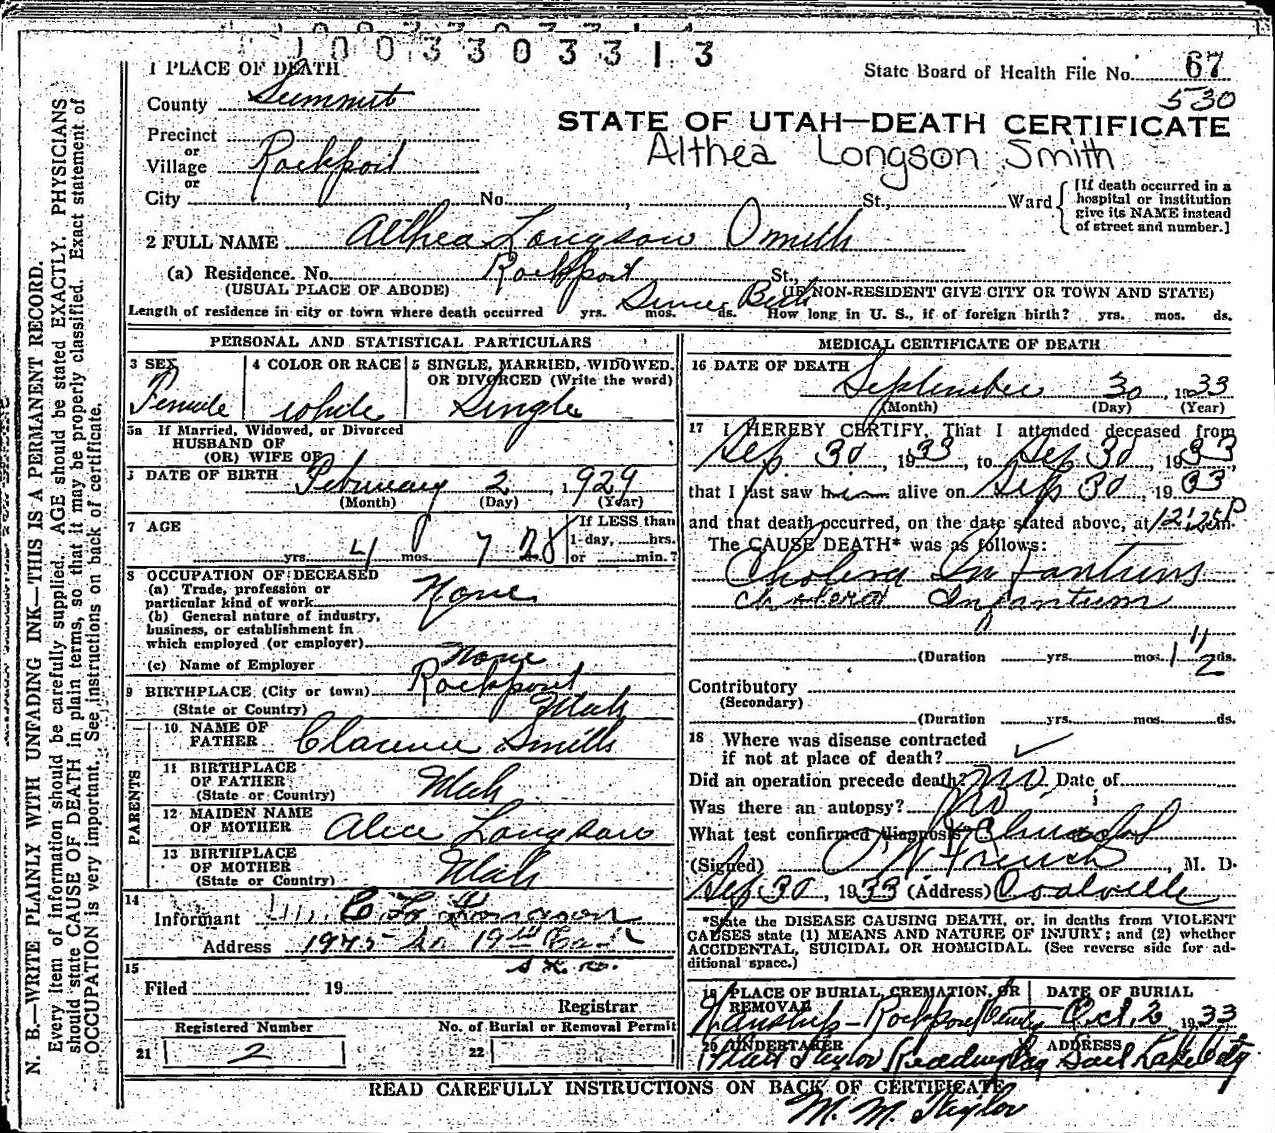 1003303313
1 PLACE OF DEATH
State Board of Health File No. 67
530
County Summit
STATE OF UTAH—DEATH CERTIFICATE
Althea Longson Smith
Precinct
or
Village Rockport
or
City No. , St., Ward
[If death occurred in a
hospital or institution
give its NAME instead
of street and number.]
2 FULL NAME Althea Longson Smith
(a) Residence. No. Rockport St.,
(USUAL PLACE OF ABODE) (IF NON-RESIDENT GIVE CITY OR TOWN AND STATE)
Since Birth
Length of residence in city or town where death occurred yrs. mos. ds. How long in U. S., if of foreign birth? yrs. mos. ds.
PERSONAL AND STATISTICAL PARTICULARS
3 SEX
Female
4 COLOR OR RACE
white
5 SINGLE, MARRIED, WIDOWED,
OR DIVORCED (Write the word)
Single
5a If Married, Widowed, or Divorced
HUSBAND OF
(OR) WIFE OF
DATE OF BIRTH February 2, 1929
(Month) (Day) (Year)
7 AGE
yrs. 4 mos. 7 ds. 28
If LESS than
1-day, hrs.
or min.?
8 OCCUPATION OF DECEASED
(a) Trade, profession or
particular kind of work None
(b) General nature of industry,
business, or establishment in
which employed (or employer)
(c) Name of Employer None
9 BIRTHPLACE (City or town) Rockport
(State or Country) Utah
PARENTS
10 NAME OF
FATHER Clarence Smith
11 BIRTHPLACE
OF FATHER Utah
(State or Country)
12 MAIDEN NAME
OF MOTHER Alice Longson
13 BIRTHPLACE
OF MOTHER Utah
(State or Country)
14
Informant Longson
Address 1945 So 19th East
S. L. C.
15
Filed 19
Registrar
Registered Number No. of Burial or Removal Permit
21 2 22
MEDICAL CERTIFICATE OF DEATH
16 DATE OF DEATH
September 30, 1933
(Month) (Day) (Year)
17 I HEREBY CERTIFY, That I attended deceased from
Sep. 30, 1933, to Sep 30, 1933
that I last saw him alive on Sep 30, 1933
and that death occurred, on the date stated above, at 12:25 P m.
The CAUSE DEATH* was as follows:
Cholera Infantums
cholera Infantum
(Duration yrs. mos. 1 1/2 ds.
Contributory
(Secondary)
(Duration yrs. mos. ds.
18 Where was disease contracted
if not at place of death?
Did an operation precede death? No Date of
Was there an autopsy? No
What test confirmed diagnosis? Clinical
(Signed) French, M. D.
Sep. 30, 1933 (Address) Coalville
*State the DISEASE CAUSING DEATH, or, in deaths from VIOLENT
CAUSES state (1) MEANS AND NATURE OF INJURY; and (2) whether
ACCIDENTAL, SUICIDAL OR HOMICIDAL. (See reverse side for ad-
ditional space.)
19 PLACE OF BURIAL, CREMATION, OR
REMOVAL
DATE OF BURIAL
Wanship - Rockport Oct. 2 1933
20 UNDERTAKER ADDRESS
Salt Lake City
READ CAREFULLY INSTRUCTIONS ON BACK OF CERTIFICATE
N. B.—WRITE PLAINLY WITH UNFADING INK—THIS IS A PERMANENT RECORD.
Every item of information should be carefully supplied. AGE should be stated EXACTLY. PHYSICIANS
should state CAUSE OF DEATH in plain terms, so that it may be properly classified. Exact statement of
OCCUPATION is very important. See instructions on back of certificate.